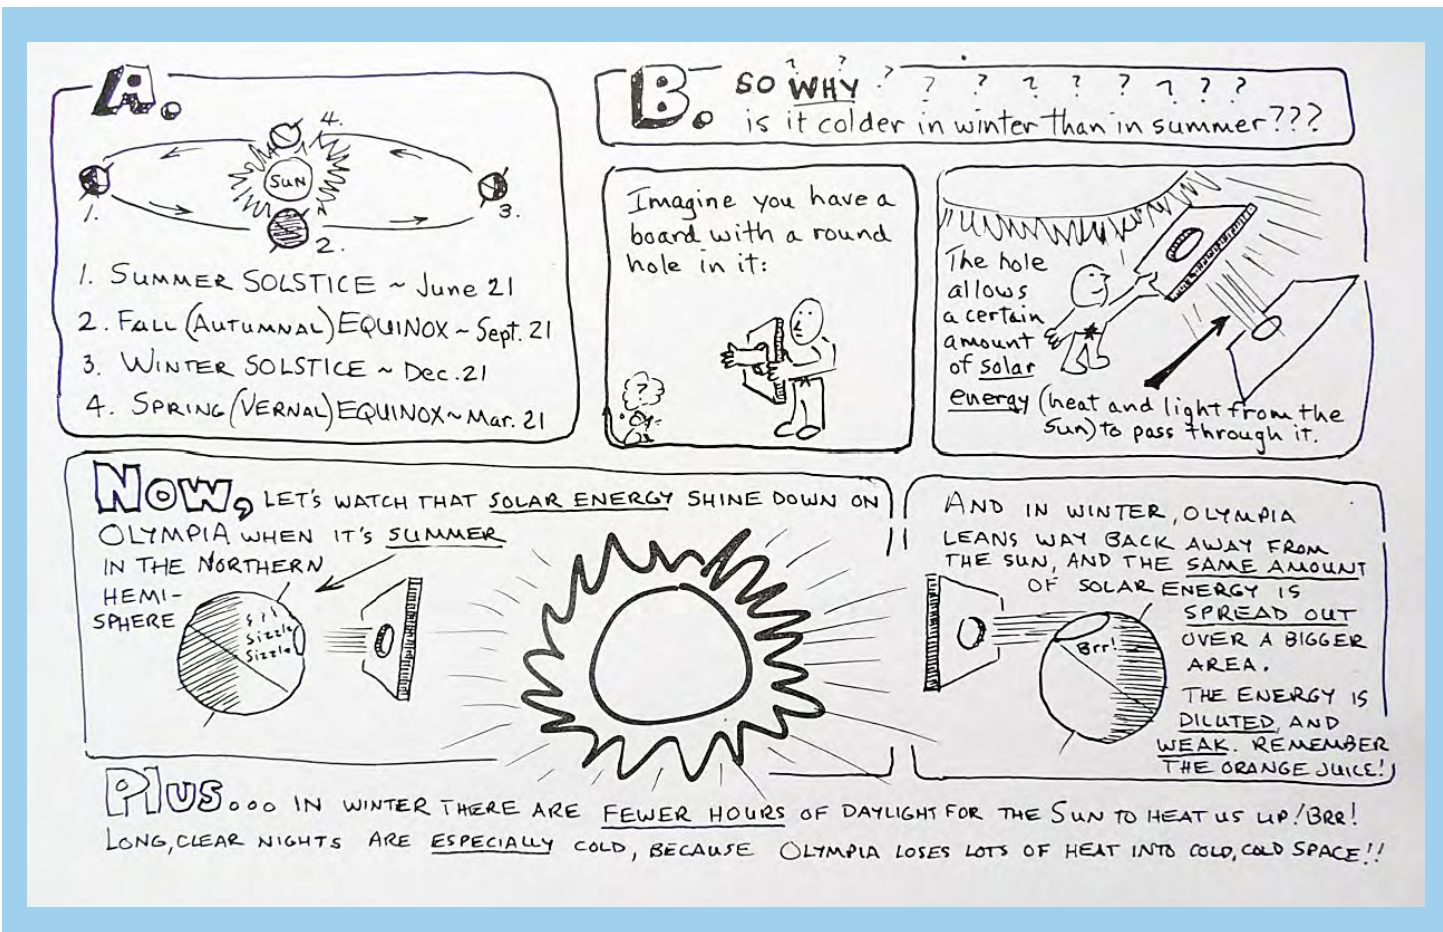 A.
4.
SUN
1.
3.
2.
1. SUMMER SOLSTICE ~ June 21
2. FALL (AUTUMNAL) EQUINOX ~ Sept. 21
3. WINTER SOLSTICE ~ Dec. 21
4. SPRING (VERNAL) EQUINOX ~ Mar. 21
B. SO WHY ? ? ? ? ? ? ? ? ? ?
is it colder in winter than in summer???
Imagine you have a
board with a round
hole in it:
?
The hole
allows
a certain
amount
of solar
energy (heat and light from the
Sun) to pass through it.
NOW, LET'S WATCH THAT SOLAR ENERGY SHINE DOWN ON
OLYMPIA WHEN IT'S SUMMER
IN THE NORTHERN
HEMI-
SPHERE
Sizzle
Sizzle
AND IN WINTER, OLYMPIA
LEANS WAY BACK AWAY FROM
THE SUN, AND THE SAME AMOUNT
OF SOLAR ENERGY IS
SPREAD OUT
OVER A BIGGER
AREA.
Brr!
THE ENERGY IS
DILUTED, AND
WEAK. REMEMBER
THE ORANGE JUICE!
Plus... IN WINTER THERE ARE FEWER HOURS OF DAYLIGHT FOR THE SUN TO HEAT US UP! BRR!
LONG, CLEAR NIGHTS ARE ESPECIALLY COLD, BECAUSE OLYMPIA LOSES LOTS OF HEAT INTO COLD, COLD SPACE!!